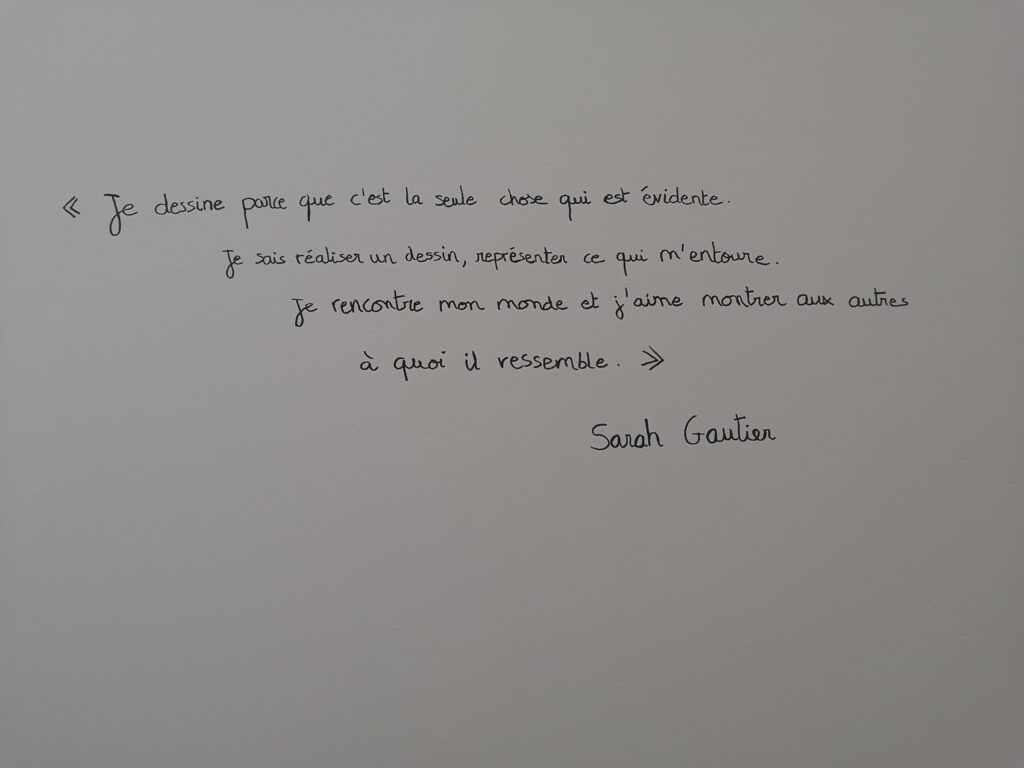 « Je dessine parce que c'est la seule chose qui est évidente.
Je sais réaliser un dessin, représenter ce qui m'entoure.
Je rencontre mon monde et j'aime montrer aux autres
à quoi il ressemble. »
Sarah Gautier